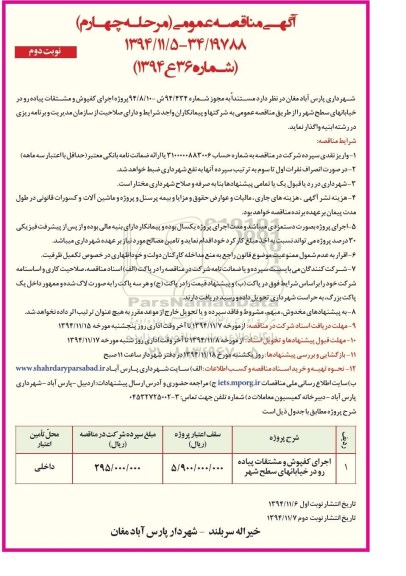 آگهی مناقصه عمومی (مرحله چهارم)
۱۳۹۴/۱۱/۵-۳۴/۱۹۷۸۸
(شماره ۳۶ع۱۳۹۴)
نوبت دوم
شهرداری پارس آباد مغان در نظر دارد مستنداً به مجوز شماره ۹۴/۴۳۴ش-۹۴/۸/۱۰ پروژه اجرای کفپوش و مشتقات پیاده رو در
خیابانهای سطح شهر را از طریق مناقصه عمومی به شرکتها و پیمانکاران واجد شرایط و دارای صلاحیت از سازمان مدیریت و برنامه ریزی
در رشته ابنیه واگذار نماید.
شرایط مناقصه:
۱- واریز نقدی سپرده شرکت در مناقصه به شماره حساب ۳۱۰۰۰۰۰۸۸۳۰۰۶ یا ارائه ضمانت نامه بانکی معتبر (حداقل با اعتبار سه ماهه)
۲- در صورت انصراف نفرات اول تا سوم به ترتیب سپرده آنها به نفع شهرداری ضبط خواهد شد.
۳- شهرداری در رد یا قبول یک یا تمامی پیشنهادها بنا به صرفه و صلاح شهرداری مختار است.
۴- هزینه نشر آگهی، هزینه های جاری، مالیات و عوارض حقوق و مزایا و بیمه پرسنل و پروژه و ماشین آلات و کسورات قانونی در طول
مدت پیمان بر عهده برنده مناقصه خواهد بود.
۵- اجرای پروژه بصورت دستمزدی میباشد و مدت اجرای پروژه یکسال بوده و پیمانکار دارای بنیه مالی بوده و از پس از پیشرفت فیزیکی
۳۰ درصد پروژه می تواند نسبت به اخذ مبلغ کارکرد خود اقدام نماید و تامین مصالح مورد نیاز بر عهده شهرداری میباشد.
۶- اقرار به عدم شمول ممنوعیت موضوع قانون راجع به منع مداخله کارکنان دولت و خود اظهاری در خصوص تکمیل ظرفیت.
۷- شرکت کنندگان می بایست سپرده و یا ضمانت نامه شرکت در مناقصه را در پاکت (الف) اسناد مناقصه، صلاحیت کاری و اساسنامه
شرکت خود را بر اساس شرایط فوق در پاکت (ب) و پیشنهاد قیمت را در پاکت (ج) و هر سه پاکت را به صورت لاک شده و ممهور داخل یک
پاکت بزرگ، به حراست شهرداری تحویل داده و رسید دریافت دارند.
۸- به پیشنهادهای مخدوش، مبهم، مشروط و فاقد سپرده و یا تحویل خارج از موعد مقرر به هیچ عنوان ترتیب اثر داده نخواهد شد.
۹- مهلت دریافت اسناد شرکت در مناقصه: از مورخه ۱۳۹۴/۱۱/۷ تا آخر وقت اداری روز پنجشنبه مورخه ۱۳۹۴/۱۱/۱۵
۱۰- مهلت قبول پیشنهادها و تحویل اسناد: از مورخه ۱۳۹۴/۱۱/۸ تا آخر وقت اداری روز شنبه مورخه ۱۳۹۴/۱۱/۱۷
۱۱- بازگشایی و بررسی پیشنهادها: روز یکشنبه مورخ ۱۳۹۴/۱۱/۱۸ در دفتر شهردار ساعت ۱۱ صبح
۱۲- نحوه تهیه و خرید اسناد مناقصه و کسب اطلاعات: الف) سایت شهرداری پارس آباد www.shahrdaryparsabad.ir
ب) سایت اطلاع رسانی ملی مناقصات iets.mporg.ir ج) مراجعه حضوری و آدرس ارسال پیشنهادات: اردبیل - پارس آباد - شهرداری
پارس آباد - دبیرخانه کمیسیون معاملات د) شماره تلفن جهت تماس: ۳-۰۴۵۳۲۷۲۵۰۰۲
شرح پروژه مطابق با جدول ذیل است
ردیف شرح پروژه سقف اعتبار پروژه (ریال) مبلغ سپرده شرکت در مناقصه (ریال) محل تأمین اعتبار
۱ اجرای کفپوش و مشتقات پیاده رو در خیابانهای سطح شهر ۵/۹۰۰/۰۰۰/۰۰۰ ۲۹۵/۰۰۰/۰۰۰ داخلی
تاریخ انتشار نوبت اول ۱۳۹۴/۱۱/۶
تاریخ انتشار نوبت دوم ۱۳۹۴/۱۱/۷
خیراله سربلند - شهردار پارس آباد مغان